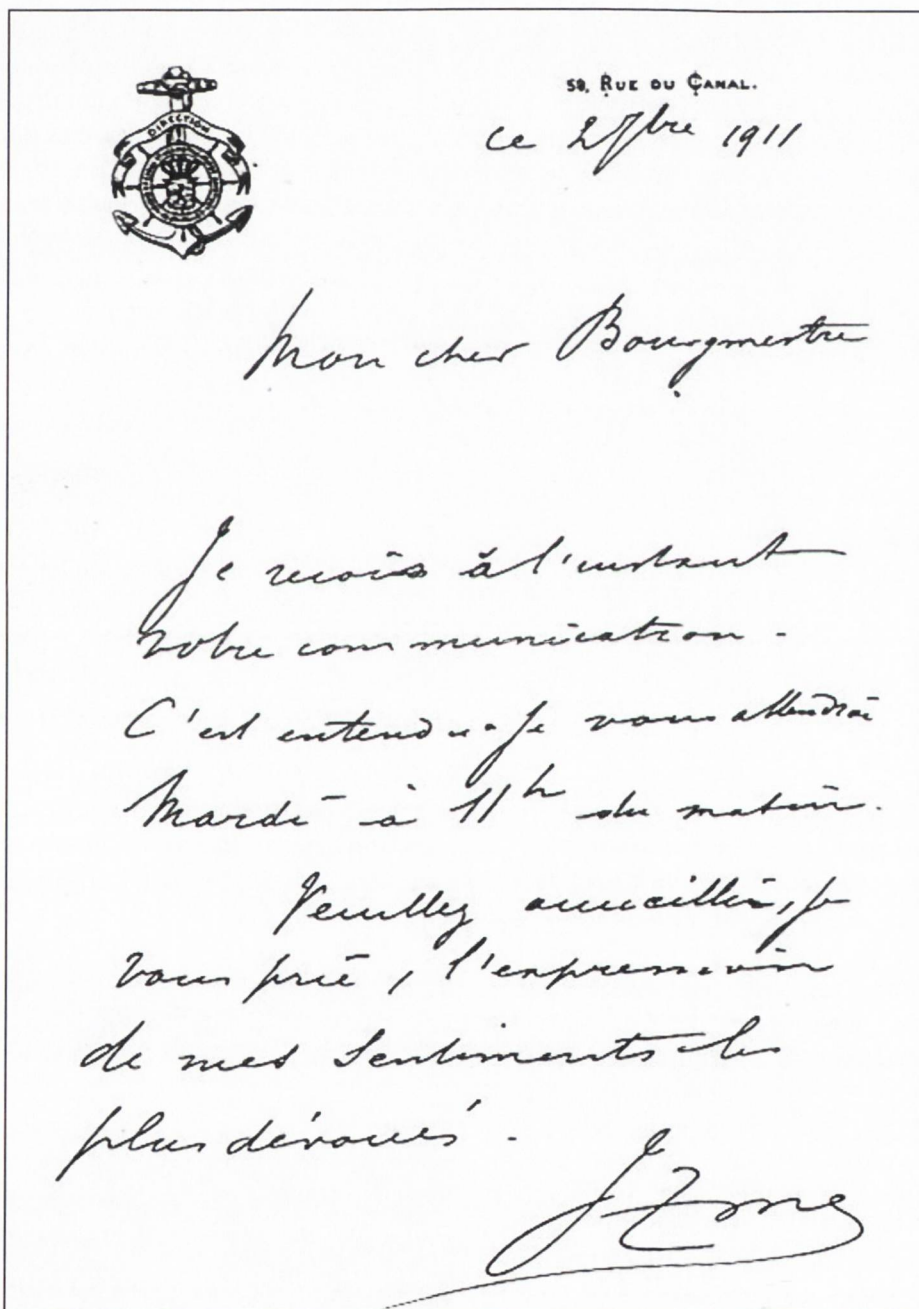 DIRECTION
58, RUE DU CANAL.
ce 2 7bre 1911
Mon cher Bourgmestre
Je reçois à l'instant
votre communication.
C'est entendu. Je vous attendrai
Mardi à 11h du matin.
Veuillez accueillir, je
vous prie, l'expression
de mes sentiments les
plus dévoués.